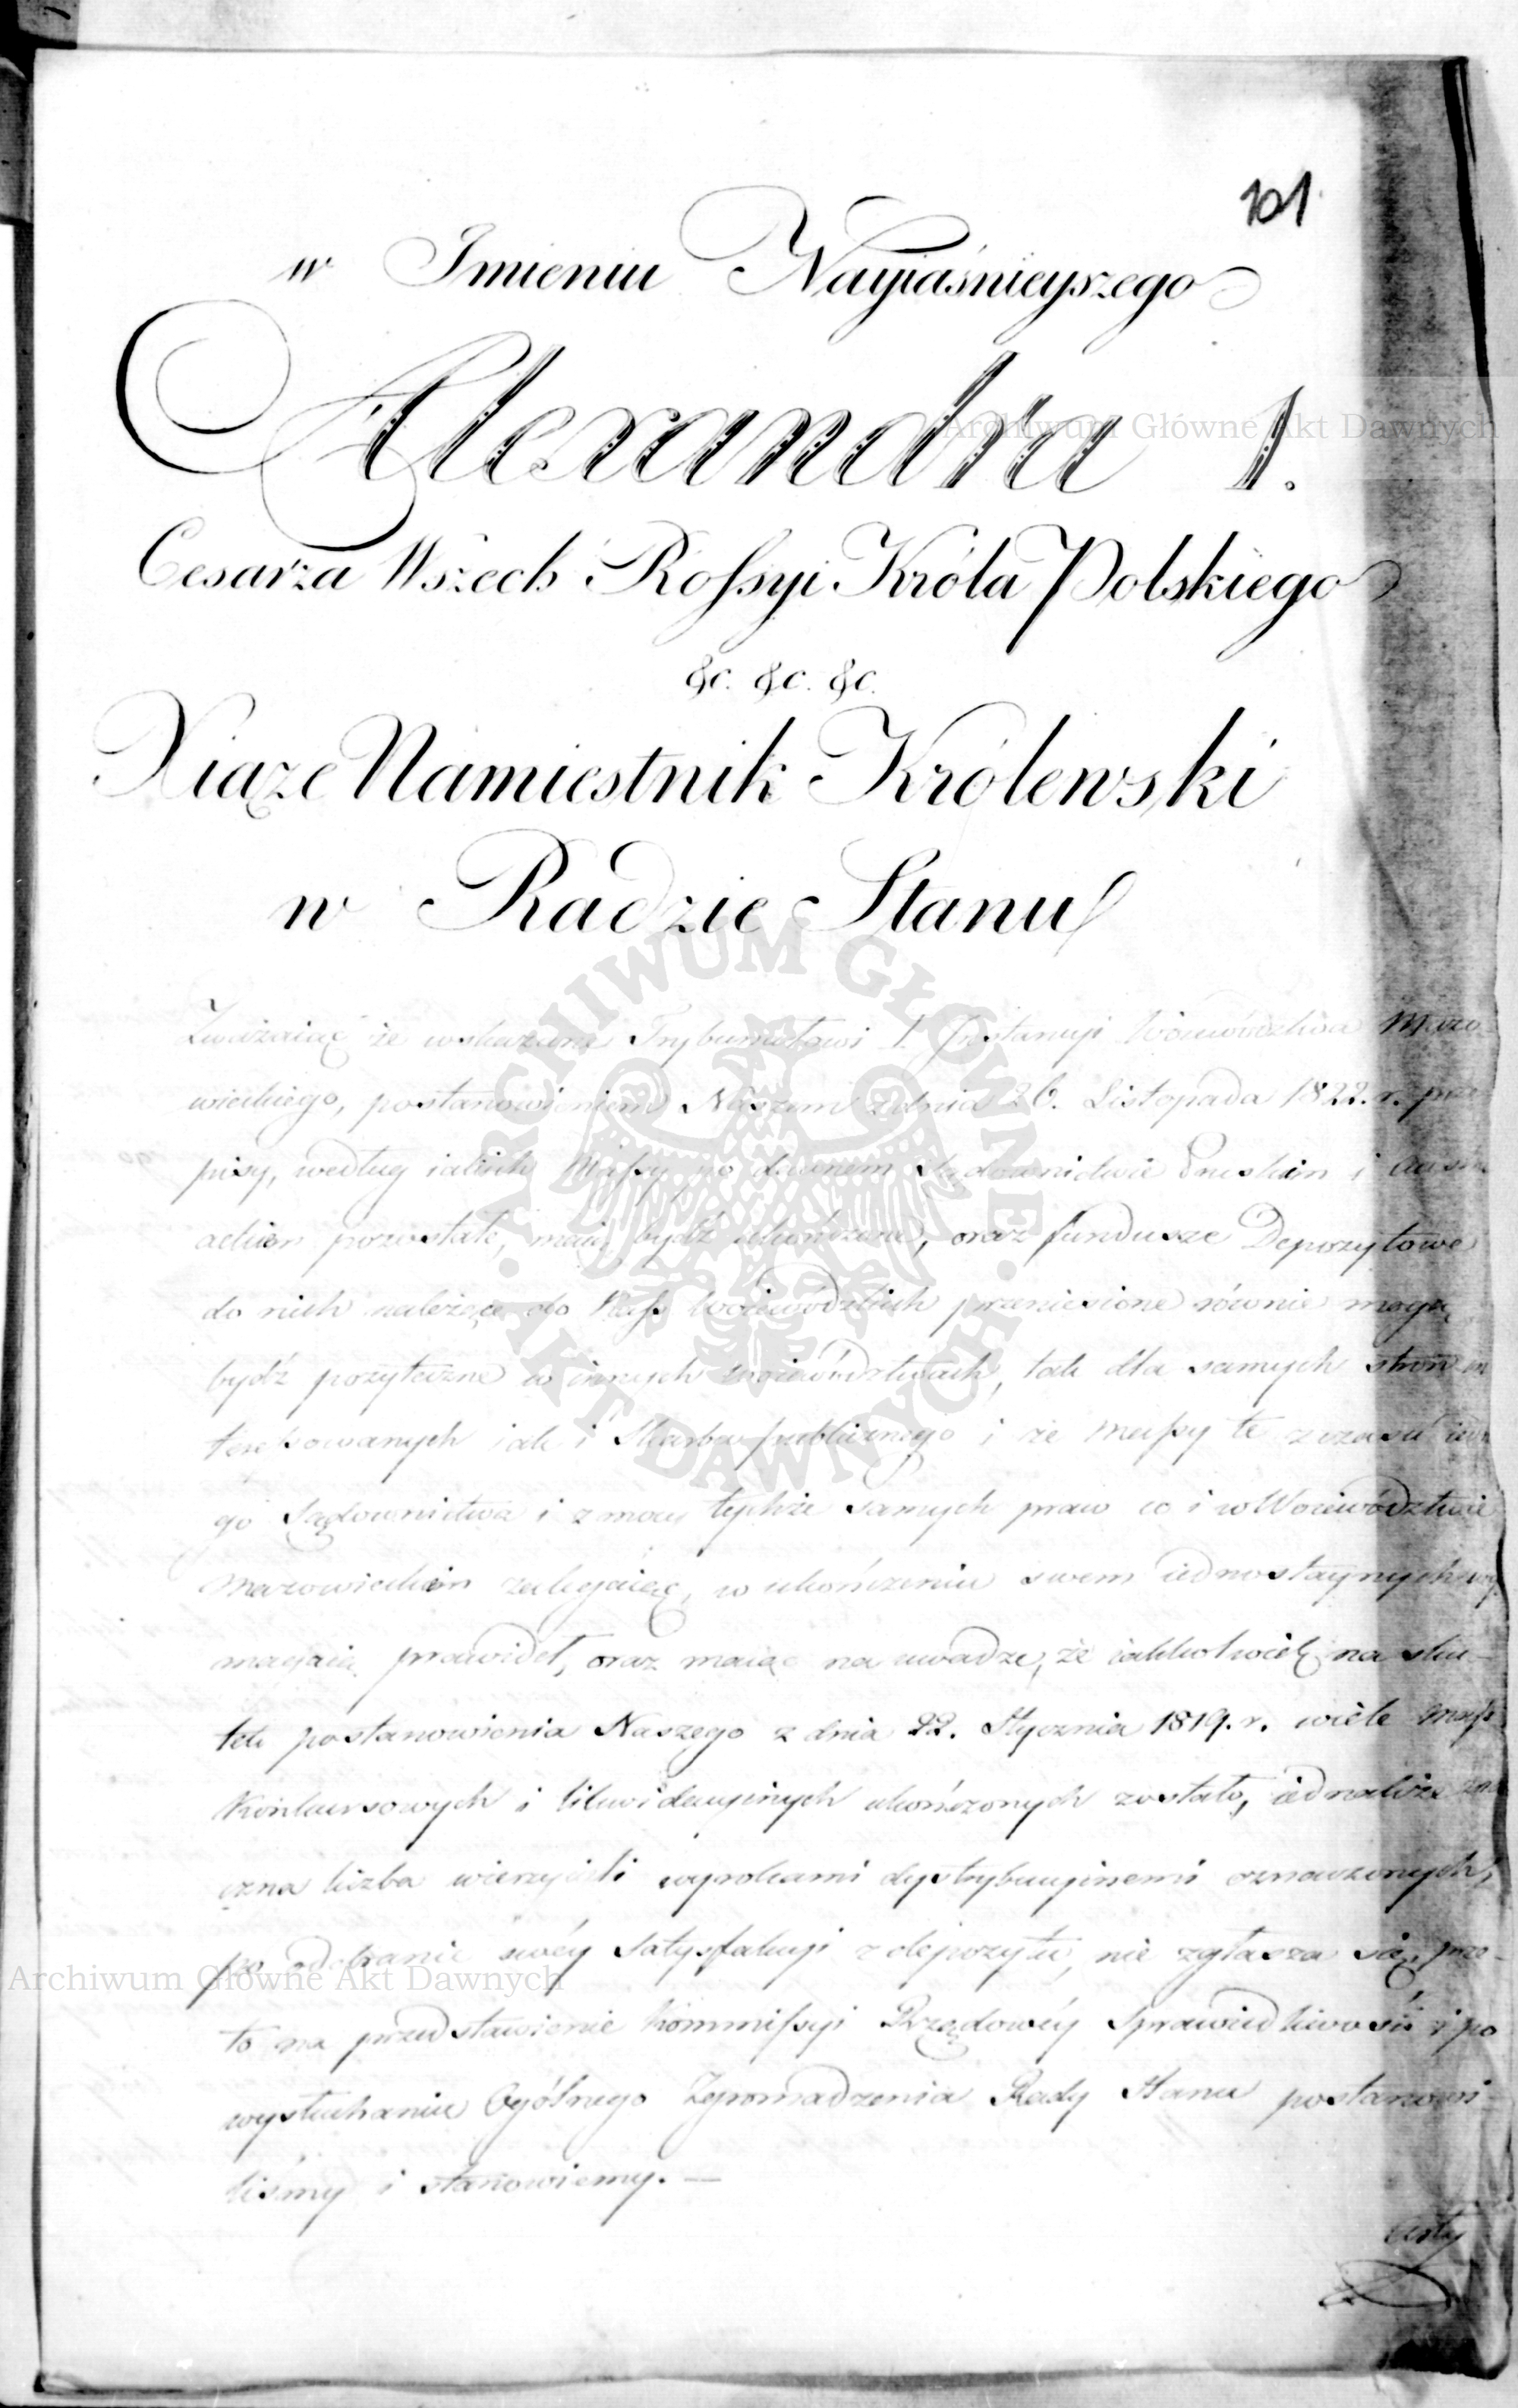 101
w Imieniu Nayiaśnieyszego
Alexandra 1.
Cesarza Wszech Rossyi Króla Polskiego
&c. &c. &c.
Xiąże Namiestnik Królewski
w Radzie Stanu
Zważaiąc że wskazane Trybunałowi I Instancyi Woiewództwa Mazo-
wieckiego, postanowieniem Naszem z dnia 26. Listopada 1822. r. prze
pisy, według iakich Massy po dawnem Sądownictwie Pruskim i Aus
ackiem pozostałe, maią bydź ukończone, oraz fundusze Depozytowe
do nich należące do Kass Woiewódzkich przeniesione równie mogą
bydź pożyteczne w innych Woiewództwach, tak dla samych stron in
teressowanych iak i Skarbu publicznego i że Massy te z czasu iedne
go Sądownictwa i z mocy tychże samych praw co i w Woiewództwie
Mazowieckim zalegaiąc, w ukończeniu swem iednostaynych wy
magaią prawideł, oraz maiąc na uwadze, że iakkolwiek na sku-
tek postanowienia Naszego z dnia 22. Stycznia 1819. r. wiele Mass
Konkursowych i likwidacyinych ukończonych zostało, iednakże zna
czna liczba wierzycieli wyrokami dystrybucyinemi oznaczonych,
po odebranie swéy Satysfakcyi z depozytu, nie zgłasza się, prze-
to na przedstawienie Kommissyi Rządowéy Sprawiedliwości i po
wysłuchaniu Ogólnego Zgromadzenia Rady Stanu postanowi-
liśmy i stanowiemy. —
Arty
Archiwum Główne Akt Dawnych
ARCHIWUM GŁÓWNE
AKT DAWNYCH
Archiwum Główne Akt Dawnych